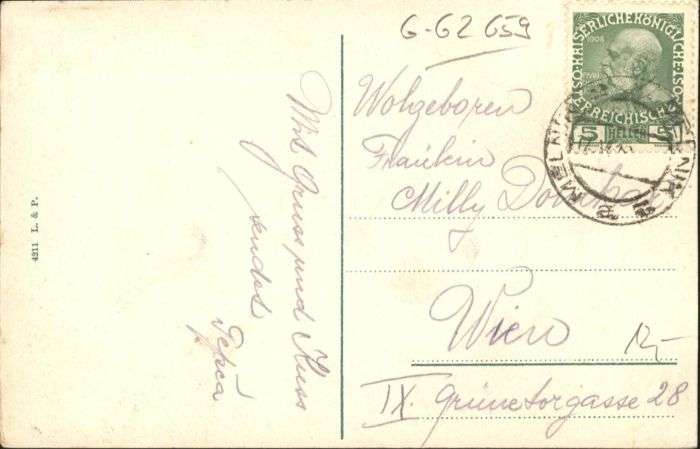 G-62 659
Mit Gruss und Kuss
sendet
4211 L. & P.
KAISERLICHE KÖNIGLICHE
ÖSTERREICHISCHE
1908
5 HELLER
Wolgeboren
Fräulein
Milly
Wien
12,-
IX. Grünetorgasse 28